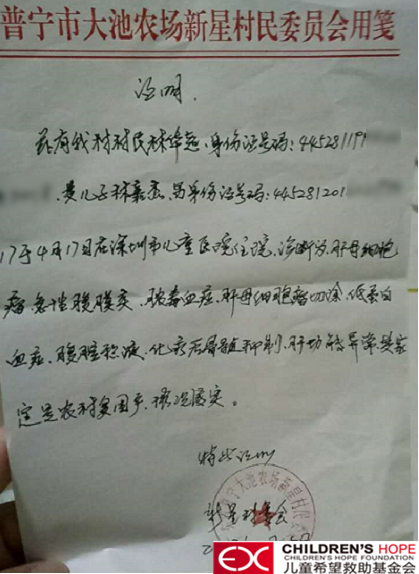 普宁市大池农场新星村民委员会用笺
证明
兹有我村村民林华超,身份证号码:4452811991
其儿子林嘉杰,男身份证号码:445281201
17年4月17日在深圳市儿童医院住院,诊断为肝母细胞
瘤、急性腹膜炎、脓毒血症、肝母细胞瘤切除、低蛋白
血症、腹腔积液、化疗后骨髓抑制、肝功能异常,其家
定是农村贫困户,情况属实。
特此证明
普宁市大池农场新星村民委员会
新星村委会
CHILDREN'S HOPE
CHILDREN'S HOPE FOUNDATION
儿童希望救助基金会